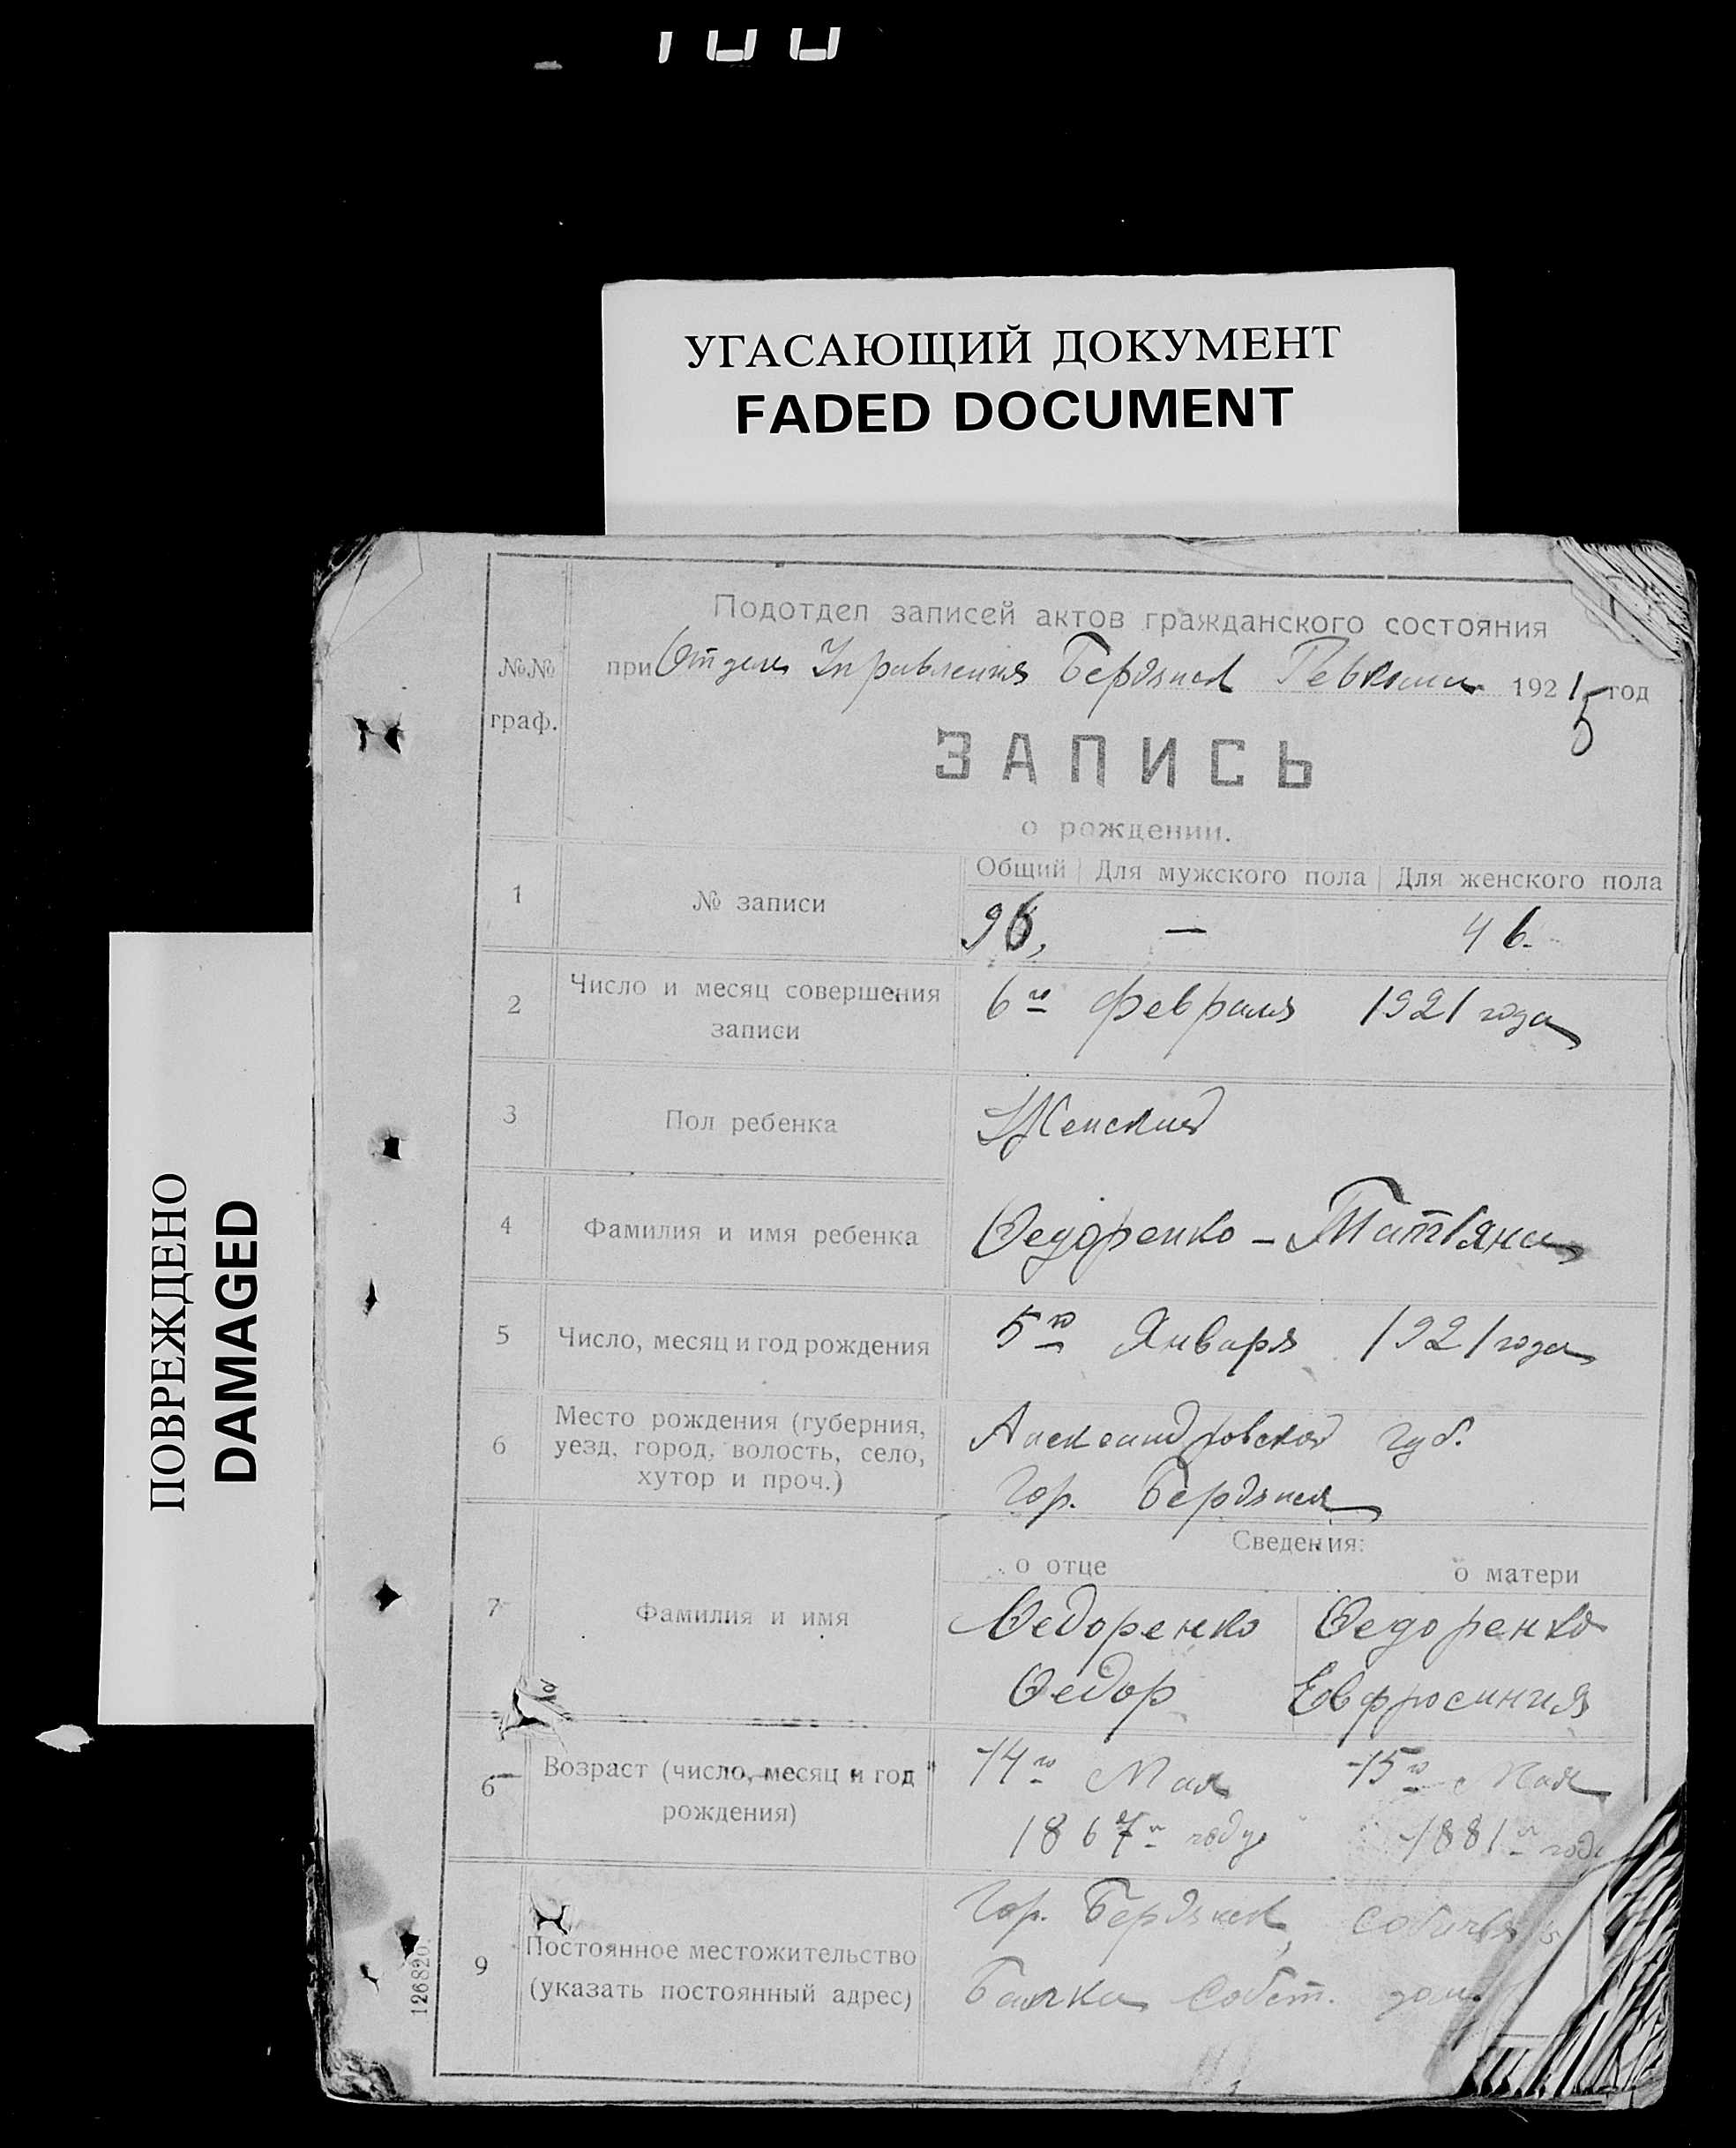 УГАСАЮЩИЙ ДОКУМЕНТ
FADED DOCUMENT
ПОВРЕЖДЕНО
DAMAGED
Подотдел записей актов гражданского состояния
№№ граф.
при Отделе Управления Бердянск Ревкома 1921 год
5
ЗАПИСЬ
о рождении.
Общий Для мужского пола Для женского пола
1 № записи 96, — 46.
2 Число и месяц совершения записи 6го Февраля 1921 года
3 Пол ребенка Женский
4 Фамилия и имя ребенка Федоренко - Татьяна
5 Число, месяц и год рождения 5го Января 1921 года
6 Место рождения (губерния, уезд, город, волость, село, хутор и проч.) Александровской губ.
Гор. Бердянск
Сведения:
о отце о матери
7 Фамилия и имя Федоренко Федоренко
Федор Евфросиния
6 Возраст (число, месяц и год рождения) 14го Мая 15го Мая
1867го году 1881го году
9 Постоянное местожительство (указать постоянный адрес) Гор. Бердянск, Собачья
Балка собст. дом.
126820.